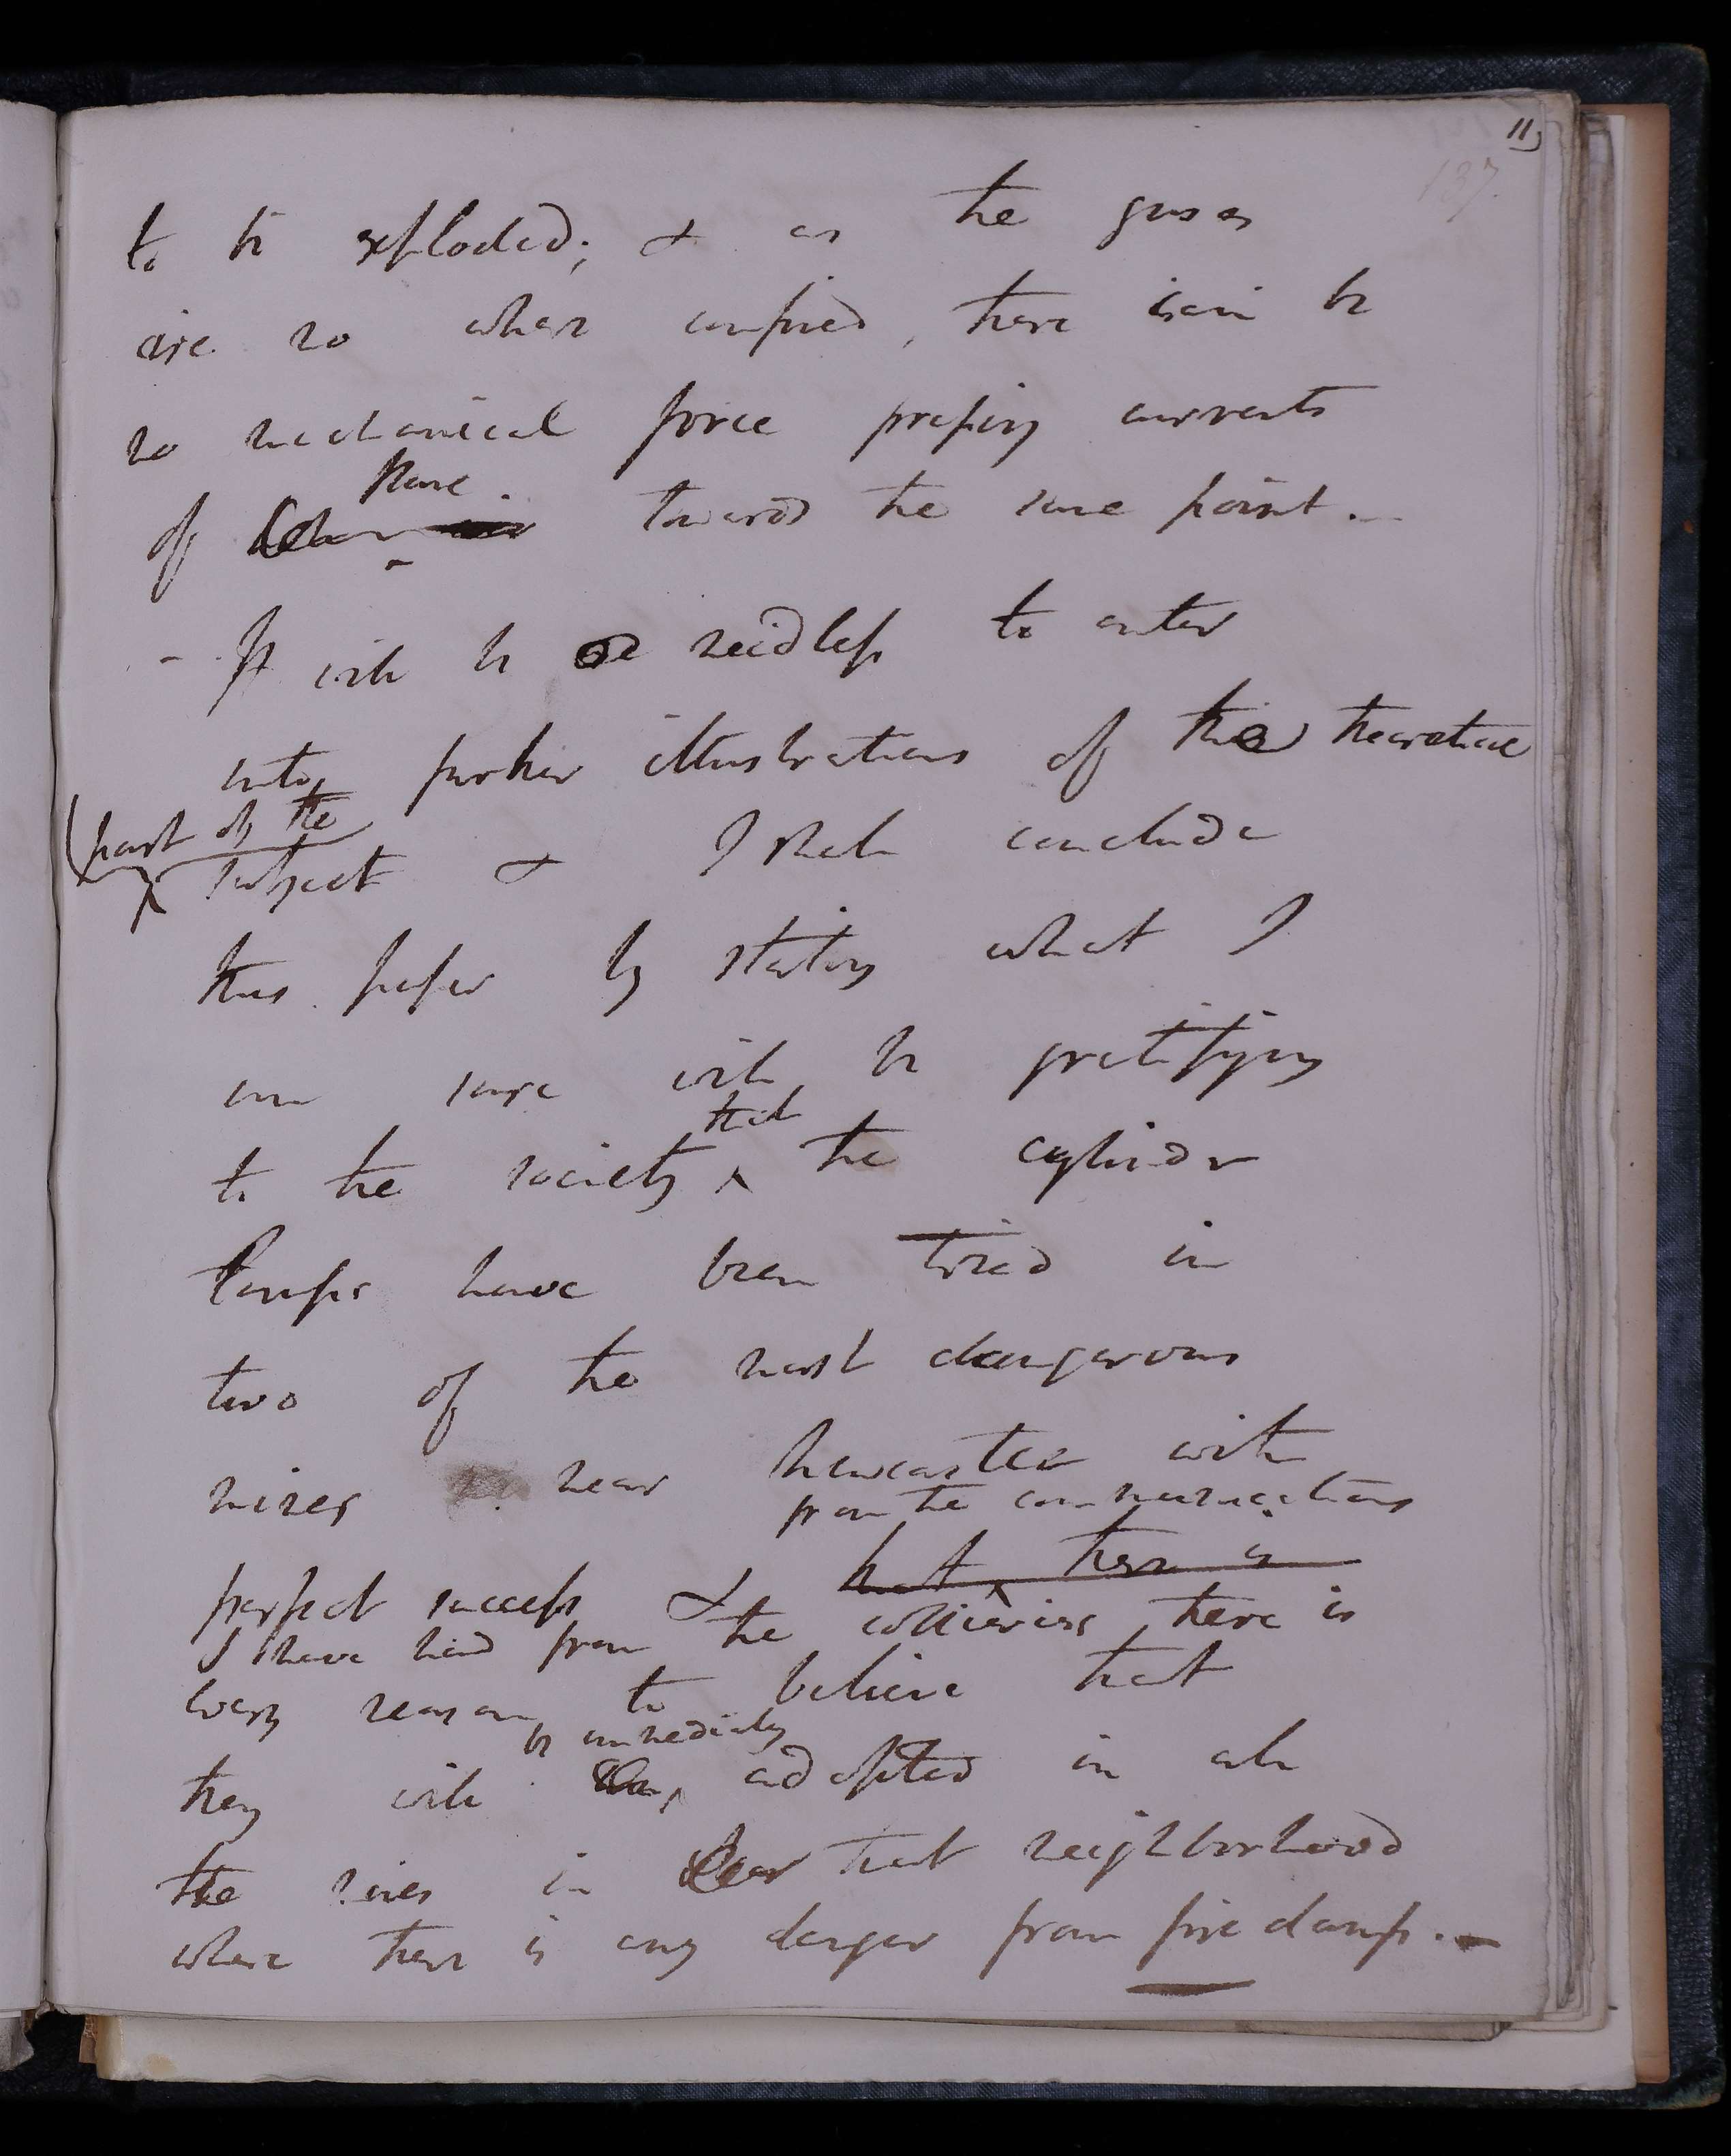 11
137.
to be exploded; & as the gases
are no where confined, there can be
no mechanical force pressing currents
flame
of towards the same point. —
- It will be needless to enter
into further illustrations of the theoretical
part of the
subject & I shall conclude
this paper by stating what I
am sure will be gratifying
that
to the society the cylinder
lamps have been tried in
two of the most dangerous
mines near Newcastle with
from the communications
perfect success & but there is
I have had from the collieries there is
every reason to believe that
be immediately
they will adopted in all
the mines in that neighborhood
where there is any danger from fire damp. —